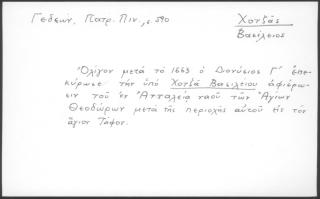 Γεδεων, Πατρ. Πιν., σ. 590
Χοντζᾶς
Βασίλειος
Ὀλίγον μετά το 1663 ὁ Διονύσιος Γ΄ ἐπε-
κύρωσε τήν ὑπό Χοντζᾶ Βασιλείου ἀφιέρω-
σιν τοῦ ἐν Ἀτταλείᾳ ναοῦ τῶν Ἁγίων
Θεοδώρων μετά τῆς περιοχῆς αὐτοῦ εἰς τόν
ἅγιον Τάφον.